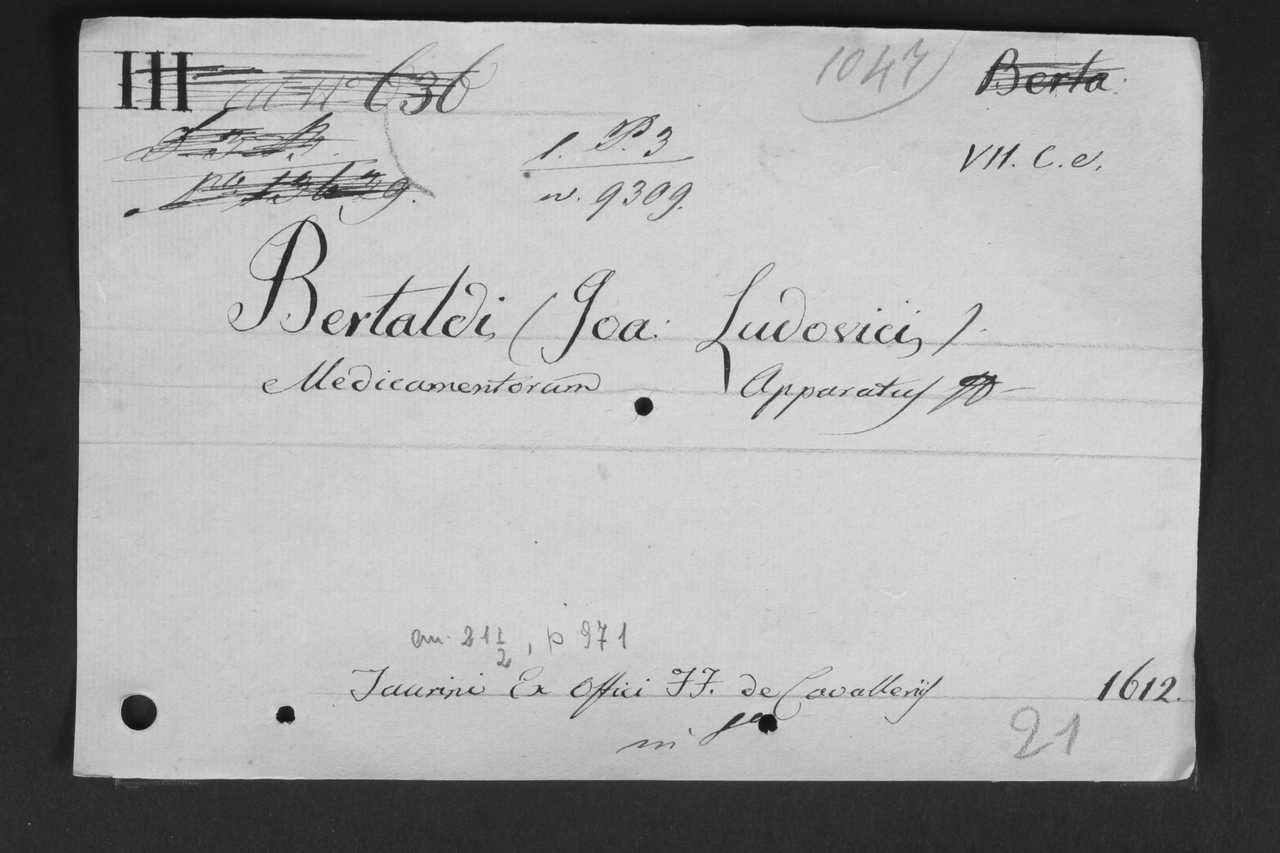 III 636 1047 Berta.
1. P. 3 VII. C. e.
n. 9309.
Bertaldi, (Joa: Ludovici,).
Medicamentorum Apparatus
an. 21 1/2, p 971
Taurini Ex Offici FF. de Cavallerijs 1612.
in
21